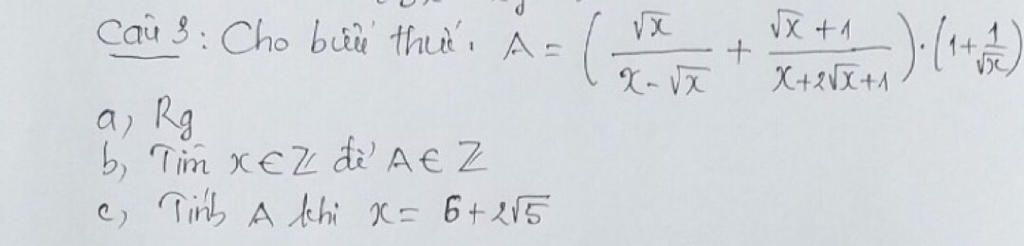 Câu 3: Cho biểu thức. A = ( √x / (x - √x) + (√x + 1) / (x + 2√x + 1) ) . (1 + 1/√x)
a, Rg
b, Tìm x ∈ Z để A ∈ Z
c, Tính A khi x = 6 + 2√5